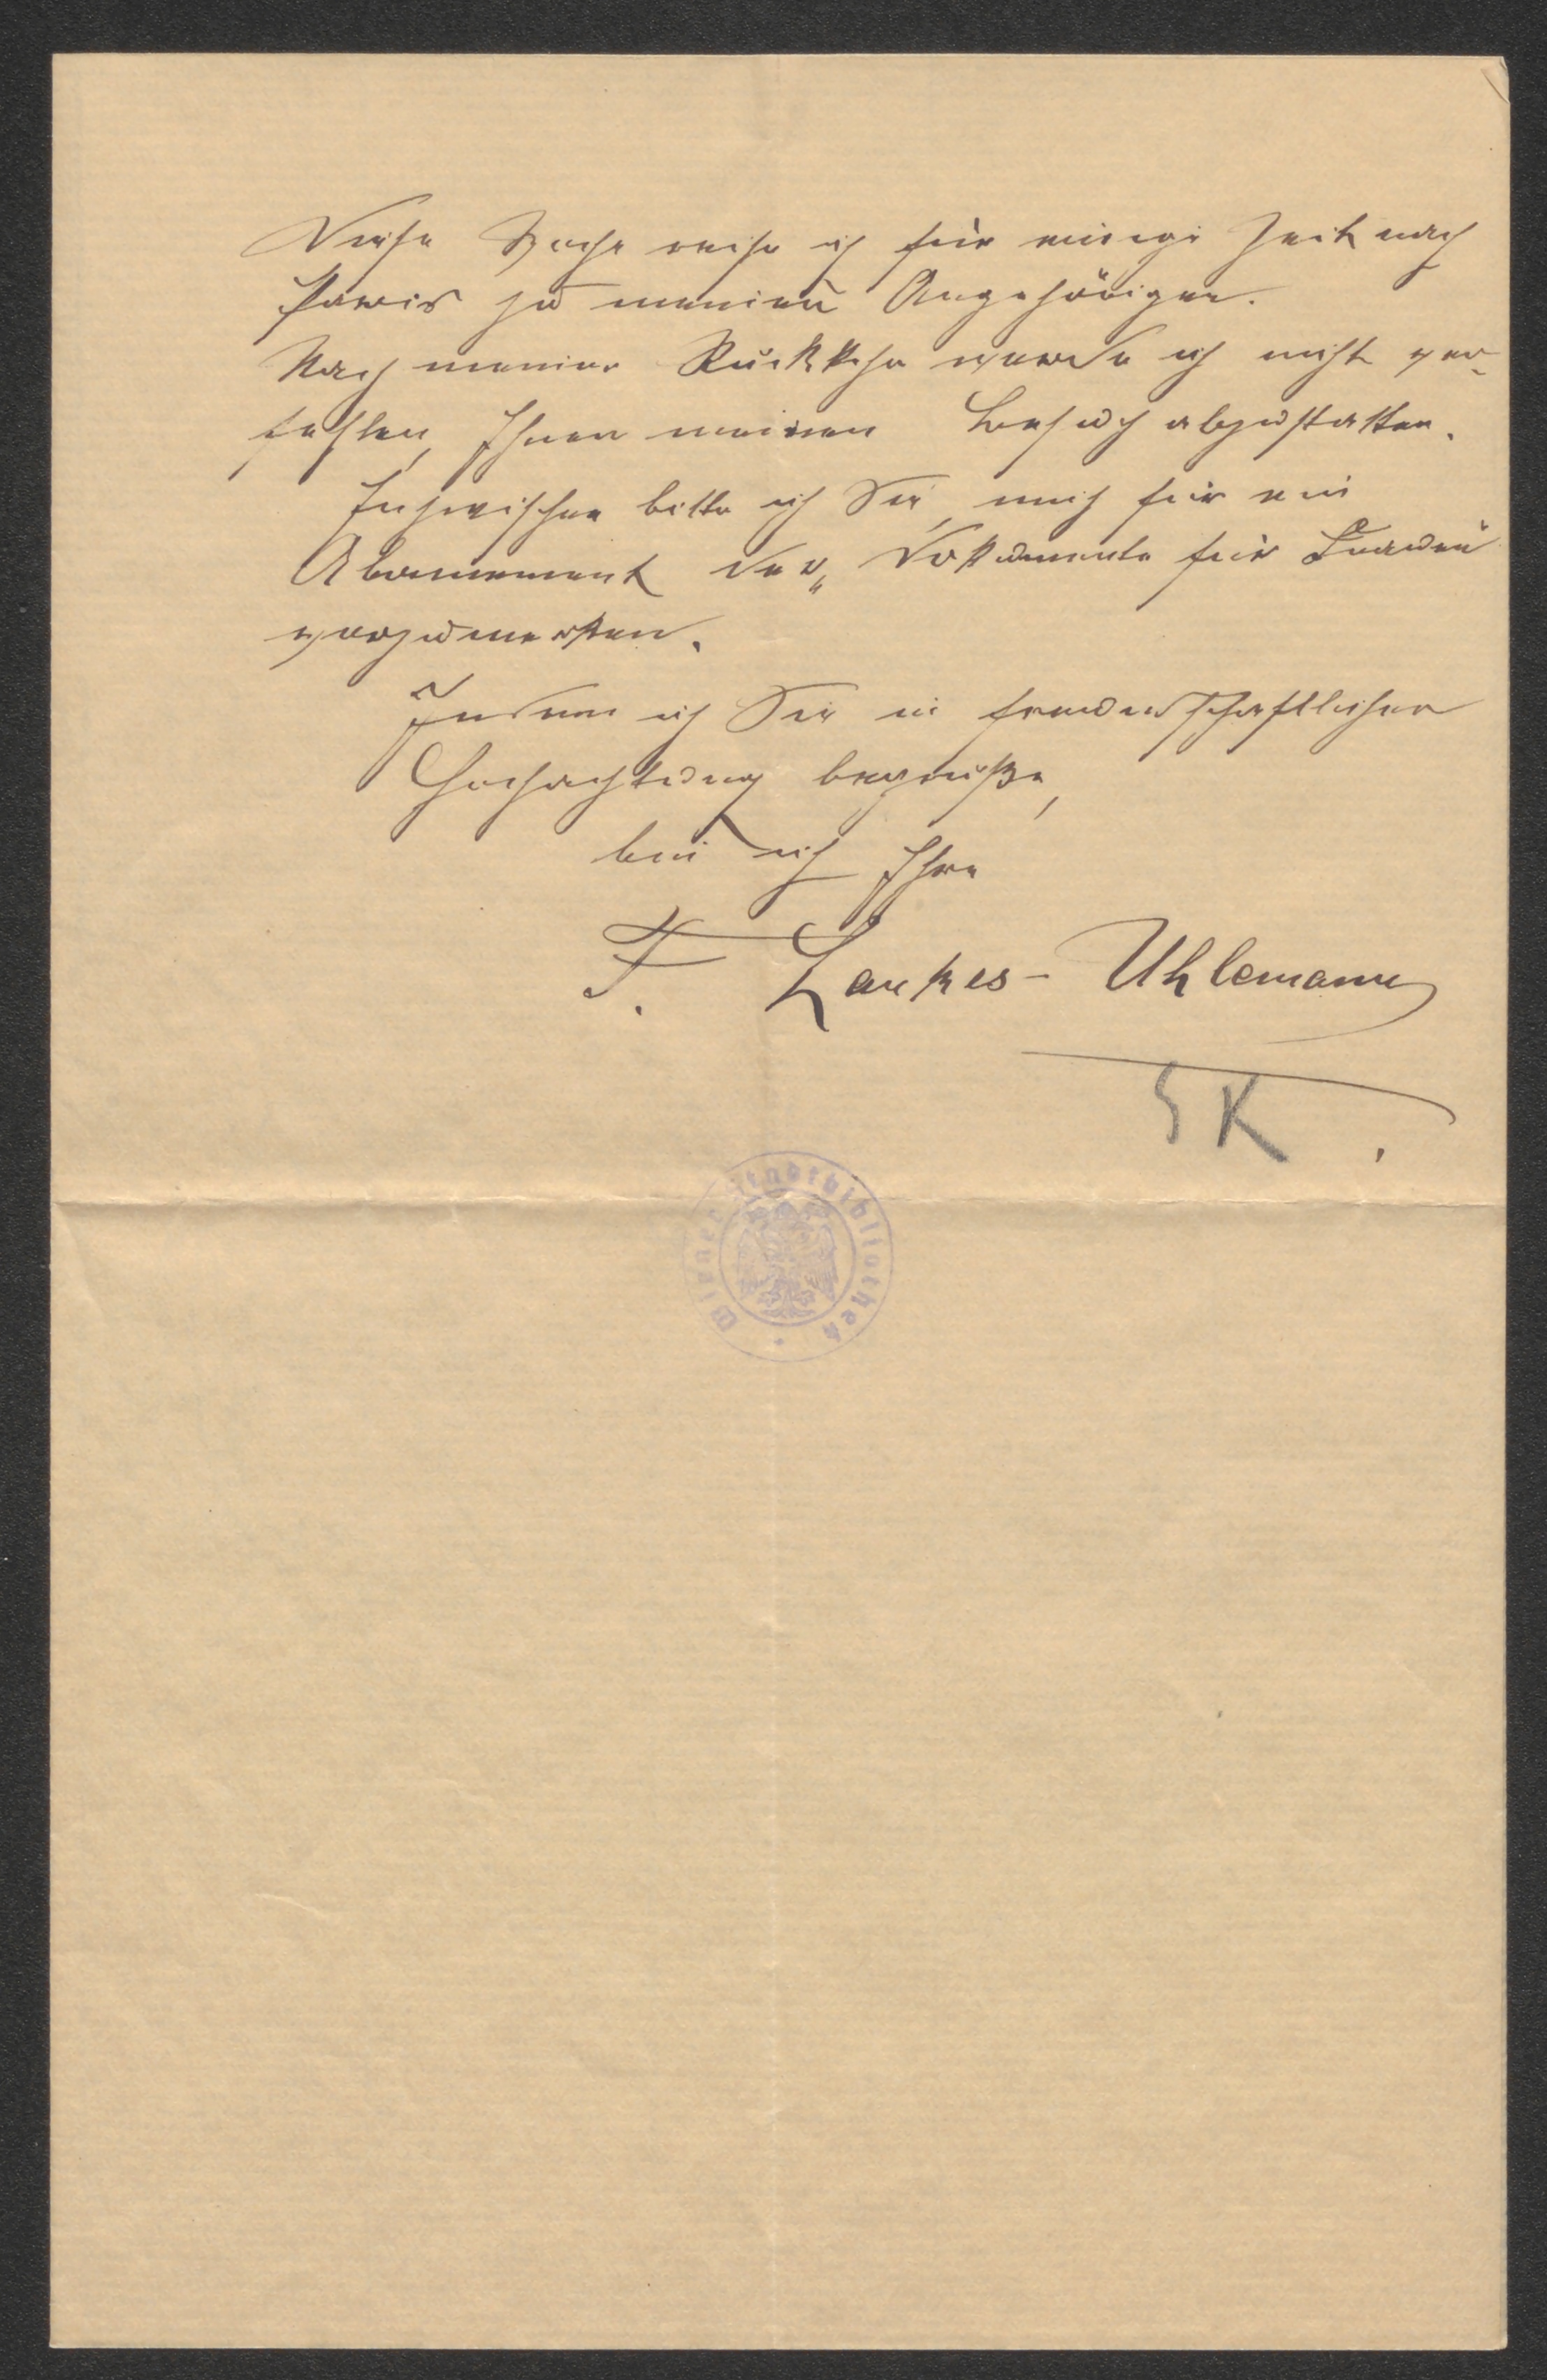 Diese Woche reise ich für einige Zeit nach
Paris zu meinen Angehörigen.
Nach meiner Rückkehr werde ich nicht ver-
fehlen, Ihnen meinen Besuch abzustatten.
Inzwischen bitte ich Sie, mich für ein
Abonnement der „Dokumente für Frauen"
vorzumerken.
Indem ich Sie in freundschaftlicher
Hochachtung begrüße,
bin ich Ihre
F. Lankes-Uhlemann
SK.
Wiener Stadtbibliothek